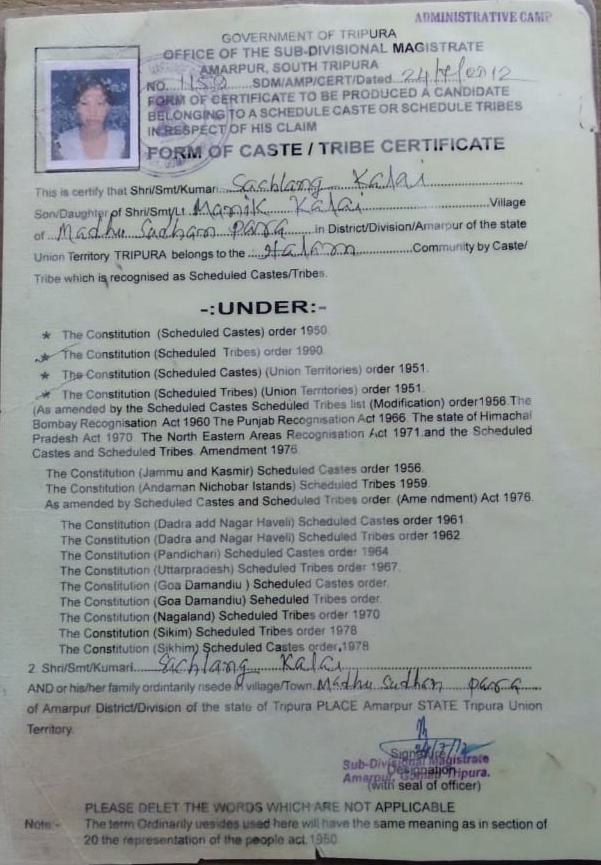 ADMINISTRATIVE CAMP
GOVERNMENT OF TRIPURA
OFFICE OF THE SUB-DIVISIONAL MAGISTRATE
AMARPUR, SOUTH TRIPURA
NO. SDM/AMP/CERT/Dated
FORM OF CERTIFICATE TO BE PRODUCED A CANDIDATE
BELONGING TO A SCHEDULE CASTE OR SCHEDULE TRIBES
IN RESPECT OF HIS CLAIM
FORM OF CASTE / TRIBE CERTIFICATE
This is certify that Shri/Smt/Kumari Sachlang Kalai
Son/Daughter of Shri/Smt/Lt Manik Kalai Village
of Madhu Sudhan para in District/Division/Amarpur of the state
Union Territory TRIPURA belongs to the Halam Community by Caste/
Tribe which is recognised as Scheduled Castes/Tribes.
-:UNDER:-
* The Constitution (Scheduled Castes) order 1950.
* The Constitution (Scheduled Tribes) order 1990.
* The Constitution (Scheduled Castes) (Union Territories) order 1951.
* The Constitution (Scheduled Tribes) (Union Territories) order 1951.
(As amended by the Scheduled Castes Scheduled Tribes list (Modification) order1956.The
Bombay Recognisation Act 1960 The Punjab Recognisation Act 1966. The state of Himachal
Pradesh Act 1970. The North Eastern Areas Recognisation Act 1971.and the Scheduled
Castes and Scheduled Tribes. Amendment 1976.
The Constitution (Jammu and Kasmir) Scheduled Castes order 1956.
The Constitution (Andaman Nichobar Islands) Scheduled Tribes 1959.
As amended by Scheduled Castes and Scheduled Tribes order (Ame ndment) Act 1976.
The Constitution (Dadra add Nagar Haveli) Scheduled Castes order 1961.
The Constitution (Dadra and Nagar Haveli) Scheduled Tribes order 1962.
The Constitution (Pandichari) Scheduled Castes order 1964.
The Constitution (Uttarpradesh) Scheduled Tribes order 1967.
The Constitution (Goa Damandiu ) Scheduled Castes order.
The Constitution (Goa Damandiu) Seheduled Tribes order.
The Constitution (Nagaland) Scheduled Tribes order 1970
The Constitution (Sikim) Scheduled Tribes order 1978
The Constitution (Sikhim) Scheduled Castes order,1978
2. Shri/Smt/Kumari Sachlang Kalai
AND or his/her family ordintarily risede in village/Town. Madhu Sudhan para
of Amarpur District/Division of the state of Tripura PLACE Amarpur STATE Tripura Union
Territory.
Signature
Sub-Divisional Magistrate
Designation
Amarpur, Gomati Tripura.
(with seal of officer)
PLEASE DELET THE WORDS WHICH ARE NOT APPLICABLE
Note:- The term Ordinarily uesides used here will have the same meaning as in section of
20 the representation of the people act.1950